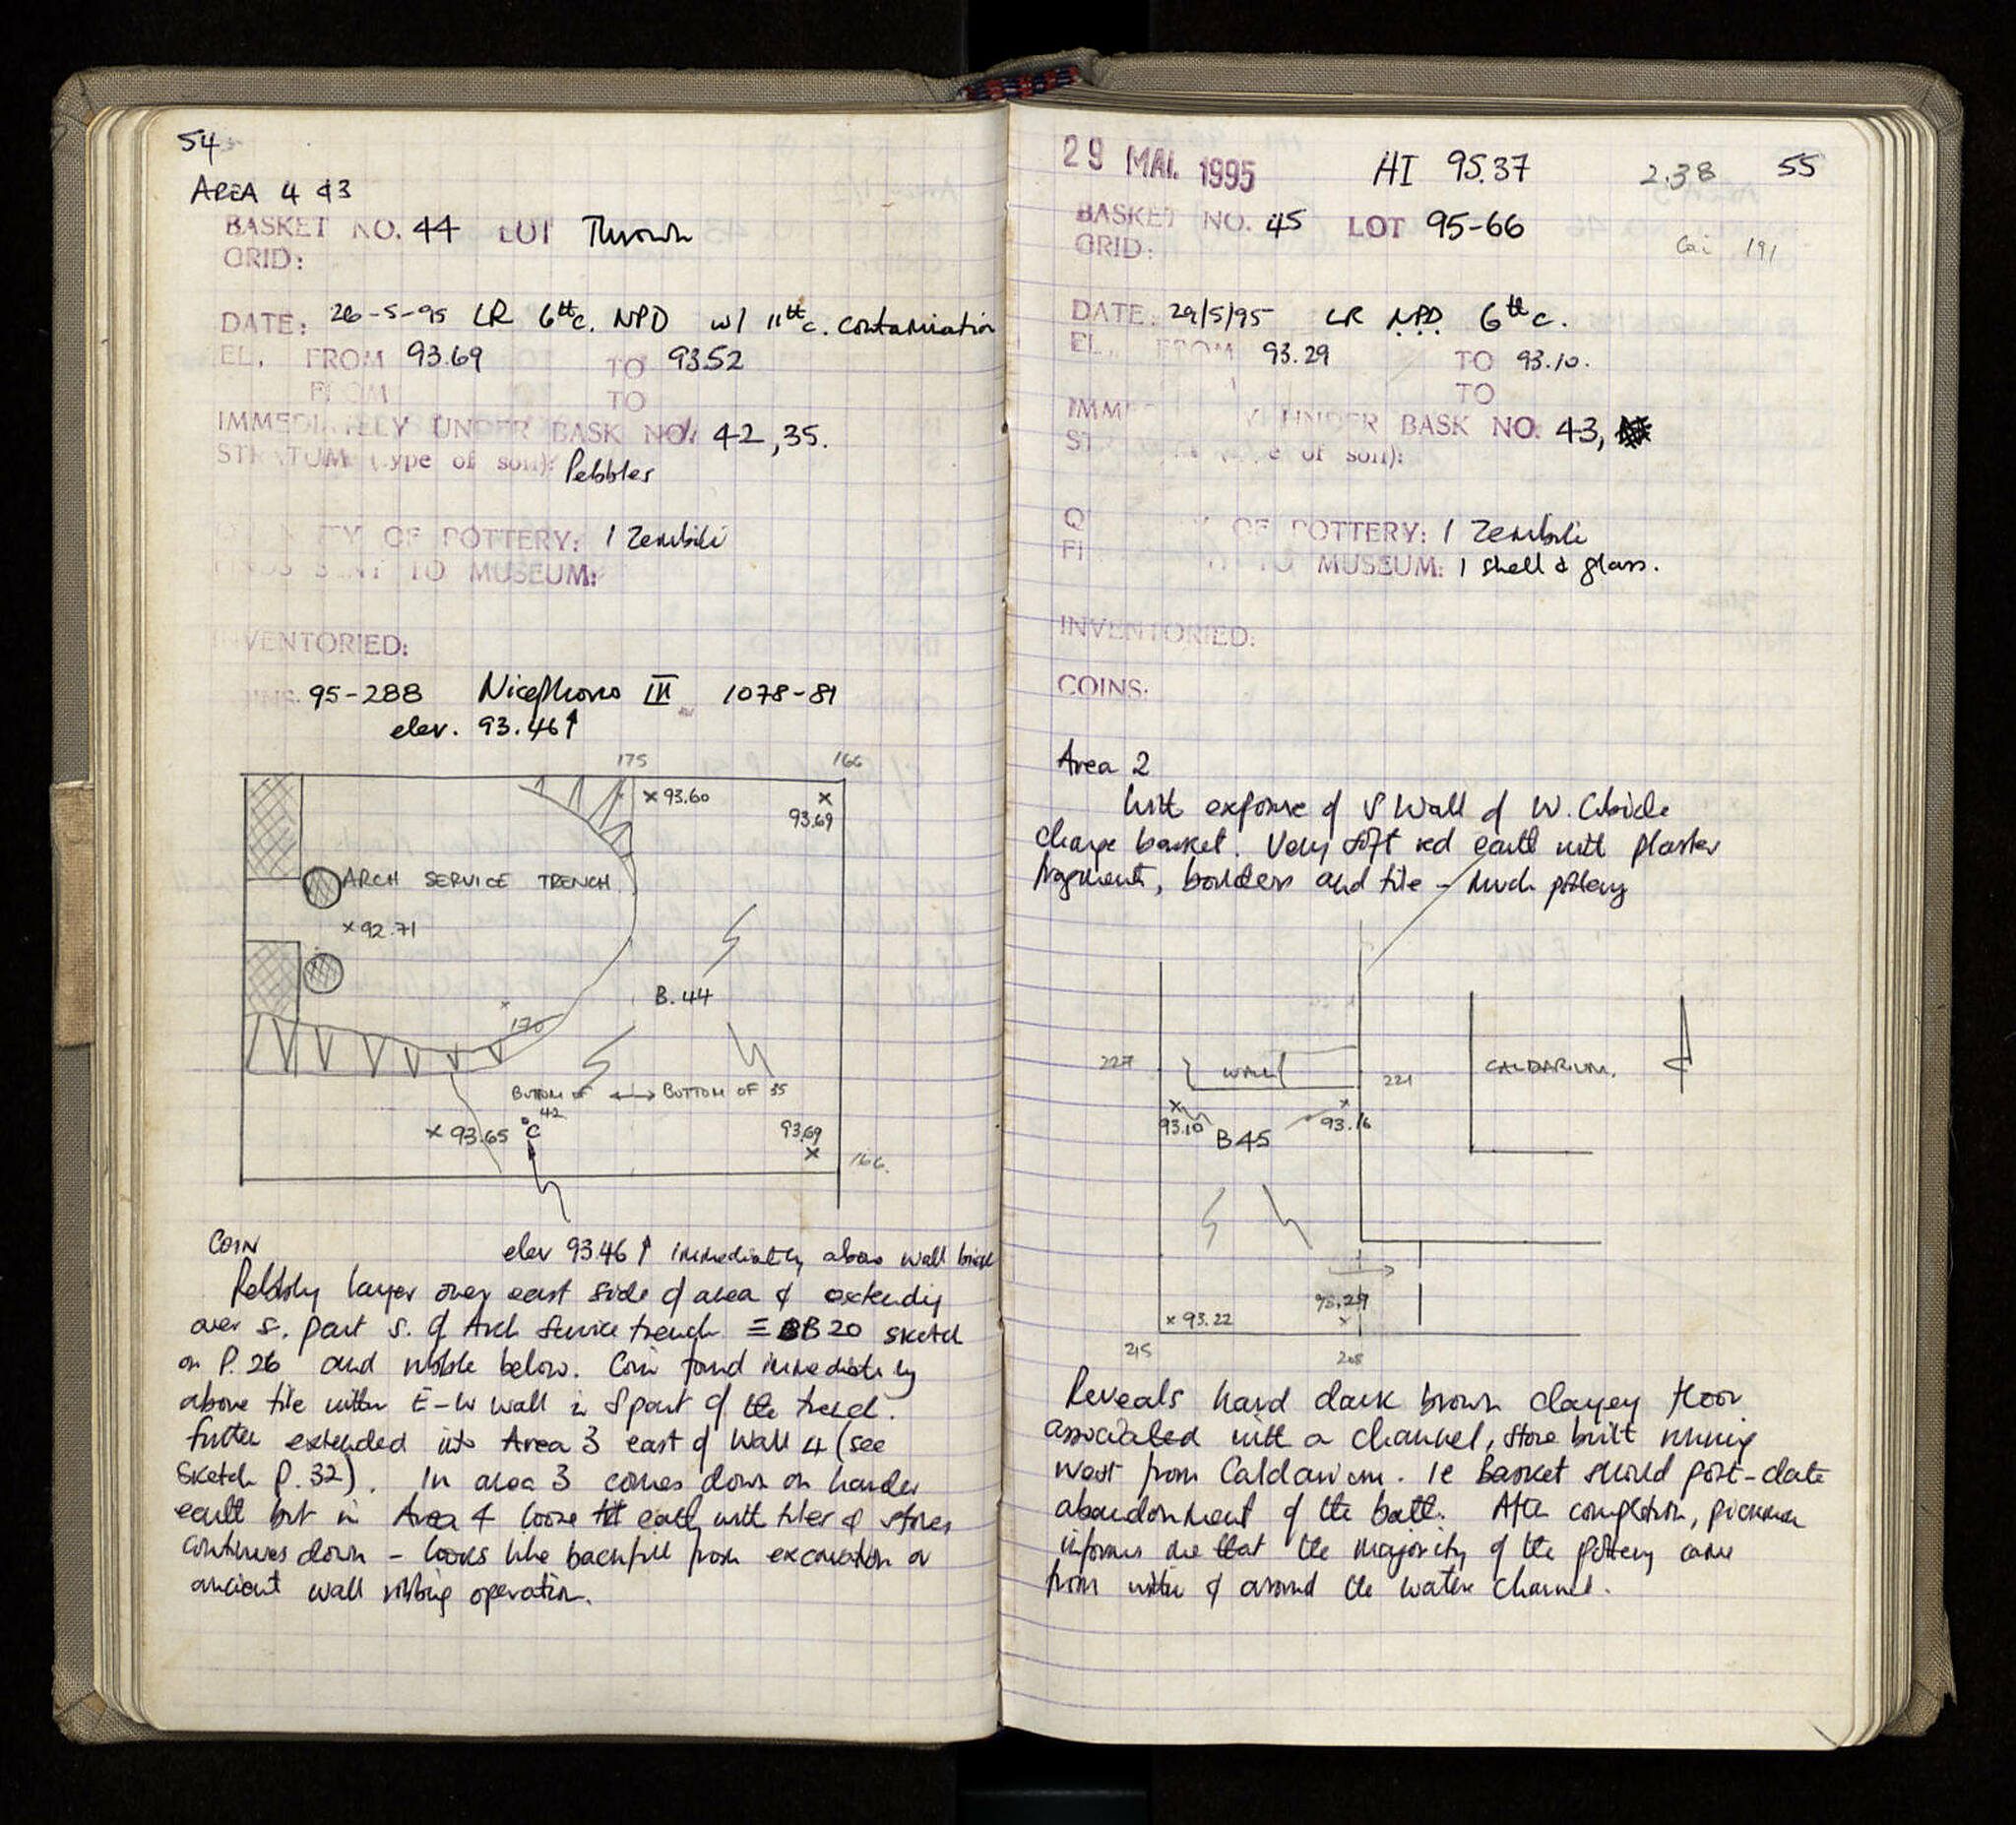 54
AREA 4 & 3
BASKET NO. 44 LOT Thrown
GRID:
DATE: 26-5-95 LR 6th c. NPD w/ 11th c. contamination
EL. FROM 93.69 TO 93.52
FROM TO
IMMEDIATELY UNDER BASK NO. 42, 35.
STRATUM (type of soil): Pebbles
QUANTITY OF POTTERY: 1 Zembili
FINDS SENT TO MUSEUM:
INVENTORIED:
COINS: 95-288 Nicephorus III 1078-81
elev. 93.46↑
175 166
× 93.60 ×
93.69
ARCH SERVICE TRENCH
× 92.71
B. 44
170
BOTTOM OF 42 ↔ BOTTOM OF 35
× 93.65 °C 93.69 ×
166.
COIN elev 93.46↑ immediately above wall brick
Pebbly layer over east side of area & extendig
over S. part S. of Arch Service trench ≡ B20 sketch
on P. 26 and visible below. Coin found immediately
above tile within E-W wall in S part of the trench.
further extended into Area 3 east of Wall 4 (see
sketch P. 32). In area 3 comes down on harder
earth but in Area 4 loose earth with tiles & stones
continues down - looks like backfill from excavation or
ancient wall robbing operation.
29 MAI. 1995 HI 95.37 2.38 55
BASKET NO. 45 LOT 95-66
GRID: 191
DATE: 29/5/95 LR NPD 6th c.
EL. FROM 93.29 TO 93.10.
TO
IMMEDIATELY UNDER BASK NO. 43,
STRATUM (type of soil):
QUANTITY OF POTTERY: 1 Zembili
FINDS SENT TO MUSEUM: 1 shell & glass.
INVENTORIED:
COINS:
Area 2
With exposure of S Wall of W. Cubicle
change basket. Very soft red earth with plaster
fragments, boulders and tile - much pottery
227 WALL 221 CALDARIUM.
× ×
93.10 B45 93.16
× 93.22 93.29
×
215 208
Reveals hard dark brown clayey floor
associated with a channel, stone built running
west from Caldarium. ie Basket should post-date
abandonment of the bath. After completion, pickman
informs me that the majority of the pottery came
from within & around the water channel.